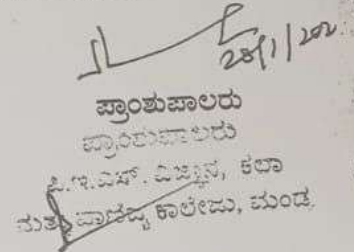 28/1/202
ಪ್ರಾಂಶುಪಾಲರು
ಪ್ರಾಂಶುಪಾಲರು
ಪಿ.ಇ.ಎಸ್. ವಿಜ್ಞಾನ, ಕಲಾ
ಮತ್ತು ವಾಣಿಜ್ಯ ಕಾಲೇಜು, ಮಂಡ್ಯ